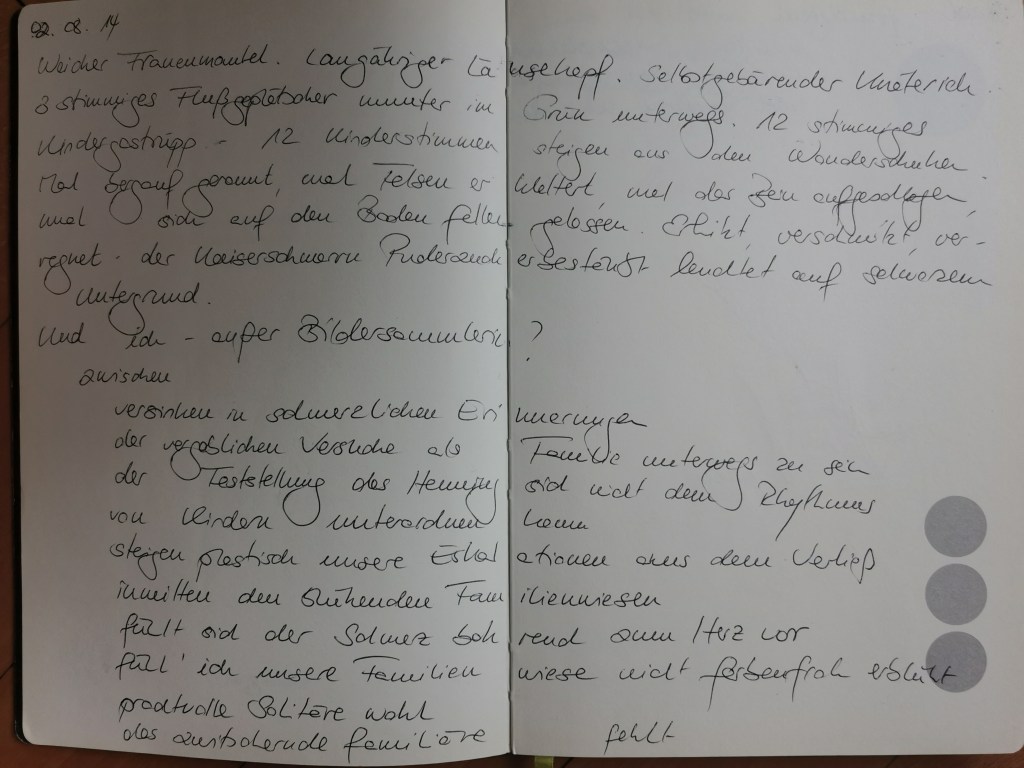 02.08.14
Weicher Frauenmantel. Langjähriger Läusekopf. Selbstgebärender Knöterich.
3 stimmiges Flußgeplätscher munter im Grün unterwegs. 12 stimmiges
Kindergestrüpp - 12 Kinderstimmen steigen aus den Wanderschuhen.
Mal bergauf gerannt, mal Felsen erklettert, mal das Bein aufgeschlagen,
mal sich auf den Boden fallen gelassen. Erhitzt, verschwitzt, ver-
regnet. der Kaiserschmarrn Puderzuckerbestäubt leuchtet auf schwarzem
Untergrund.
Und ich - außer Bildersammlerin ?
zwischen
versinken in schmerzlichen Erinnerungen
der vergeblichen Versuche als Familie unterwegs zu sein
der Feststellung das Henning sich nicht dem Rhythmus
von Kindern unterordnen kann
steigen plastisch unsere Eskalationen aus dem Verließ
inmitten den blühenden Familienwiesen
fühlt sich der Schmerz bohrend am Herz vor
fühl' ich unsere Familienwiese nicht farbenfroh erblüht
prachtvolle Solitäre wohl
das zwitschernde familiäre fehlt